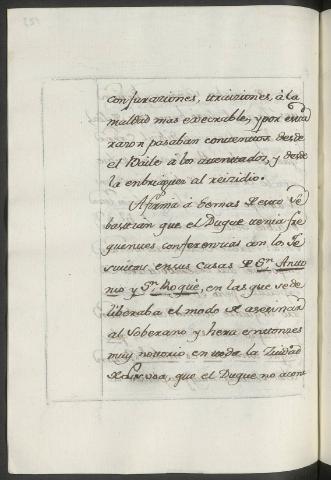 conjuraziones, ò traiziones, à la
maldad mas execrable, y por esta
razon pasaban contentos desde
el Baile à los attenttados, y desde
la enbriaguez al rejizidio.
Afirmo à demas Pedro Se
bastian que el Duque tenia fre
quenttes conferenzias con los Je
suittas en sus Casas de Sn. Antto
nio y Sn. Roque, en las que se de
liberaba el modo de asesinar
al Soberano y hera enttonzes
muy nottorio, en toda la Ziudad
de Lisvoa, que el Duque no acom